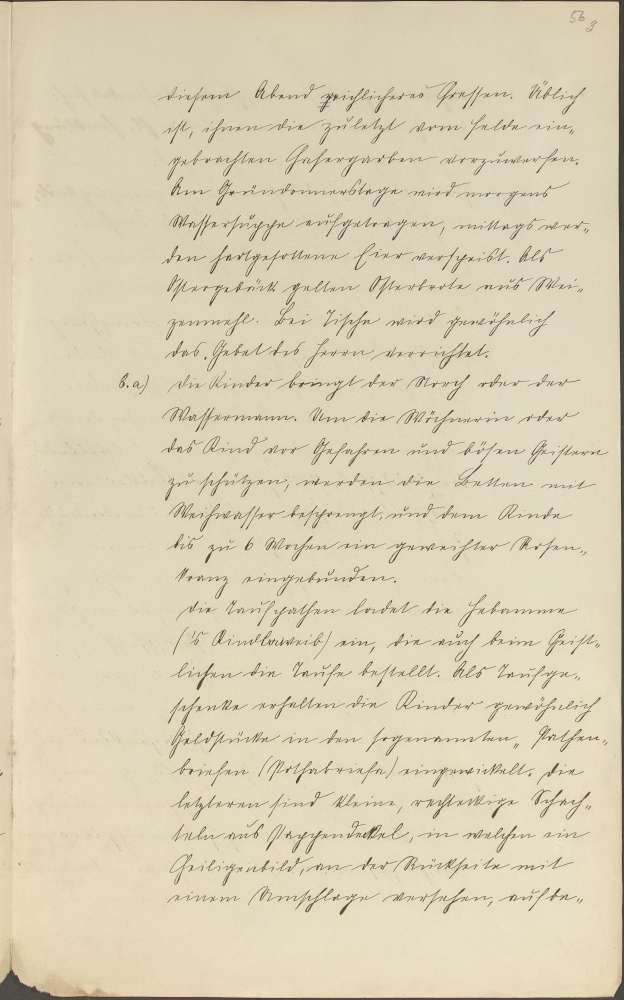 56
9
diesem Abend reichlicheres Fressen. Üblich
ist, ihnen die zuletzt vom Felde ein-
gebrachten Hafergarben vorzuwerfen.
Am Gründonnerstage wird morgens
Wassersuppe aufgetragen, mittags wer-
den hartgesottene Eier verspeist. Als
Ostergebäck gelten Osterbrote aus Wei-
zenmehl. Bei Tische wird gewöhnlich
das Gebet des Herrn verrichtet.
6. a) Die Kinder bringt der Storch oder der
Wassermann. Um die Wöchnerin oder
das Kind vor Gefahren und bösen Geistern
zu schützen, werden die Betten mit
Weihwasser besprengt, und dem Kinde
bis zu 6 Wochen ein geweihter Rosen-
kranz eingebunden.
Die Taufpathen ladet die Hebamme
('s Kindlaweib) ein, die auch beim Geist-
lichen die Taufe bestellt. Als Taufge-
schenke erhalten die Kinder gewöhnlich
Geldstücke in den sogenannten „Pathen-
briefen (Pothabriefa) eingewickelt. Die
letzteren sind kleine, rechteckige Schach-
teln aus Pappendeckel, in welchen ein
Heiligenbild, an der Rückseite mit
einem Umschlage versehen, aufbe-